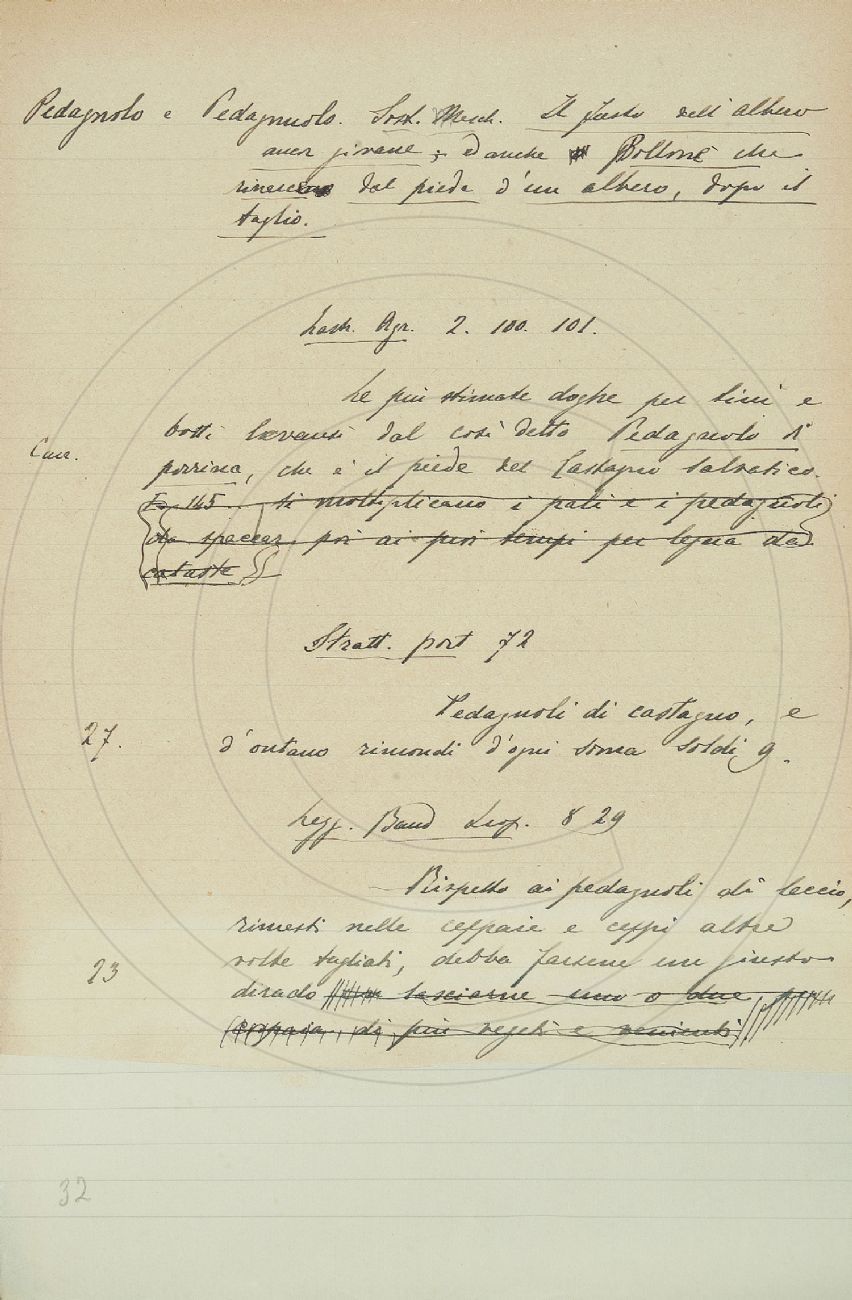 Pedagnolo e Pedagnuolo. Sost. Masch. Il fusto dell'albero
ancor giovane; ed anche Pollone che
rimesce dal piede d'un albero, dopo il
taglio.
Last. Agr. 2. 100. 101.
Le più stimate doghe per tini e
botti levansi dal così detto Pedagnuolo di
Cap.
porrina, che è il piede del Castagno salvatico.
E 145. Si moltiplicano i pali e i pedagnuoli
da speccar poi ai suoi tempi per legna da
cataste
Stratt. port 72
Pedagnoli di castagno, e
27.
d'ontano rimondi d'ogni soma soldi 9.
Legg. Band Leop. 8 29
Rispetto ai pedagnoli di leccio,
rimesti nelle ceppaie e ceppi altre
23
volte tagliati, debba farsene un giusto
dirado lasciarne uno o due per
ceppaia di più vegeti e venienti
32